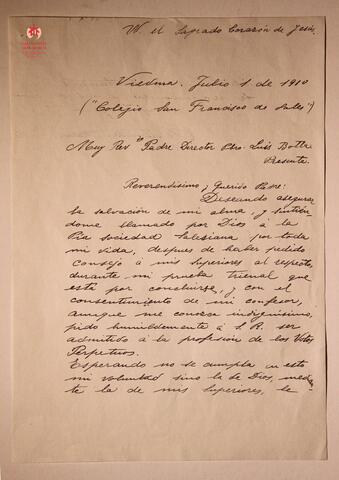 W. el Sagrado Corazón de Jesús.
Viedma. Julio 1 de 1910
("Colegio San Francisco de Sales")
Muy Rev.do Padre Director Pbro. Luis Botta
Presente.
Reverendísimo y Querido Padre:
Deseando asegurar
la salvación de mi alma, y sintién
dome llamado por Dios á la
Pia sociedad Salesiana por toda
mi vida, despues de haber pedido
consejo á mis superiores al respecto,
durante mi prueba trienal que
está por concluirse, y con el
consentimiento de mi confesor,
aunque me conozca indignísimo,
pido humildemente á S. R. ser
admitido á la profesión de los Votos
Perpetuos.
Esperando no se cumpla en esto
mi voluntad sino la de Dios, median
te la de mis superiores, le